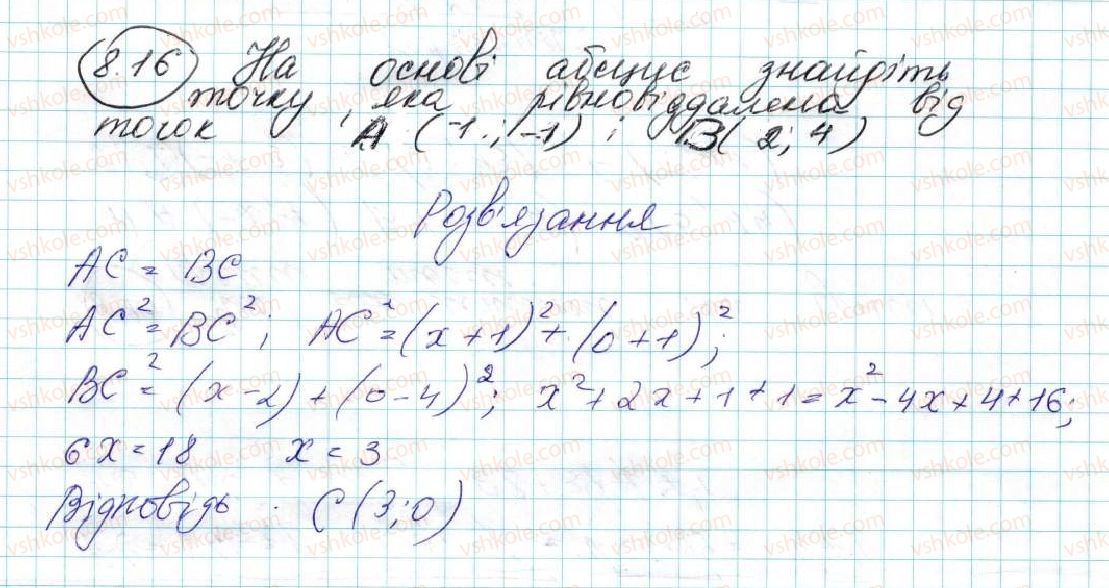 8.16 На основі абсцис знайдіть
точку, яка рівновіддалена від
точок A (-1; -1) ; B( 2; 4)
Розв'язання
AC = BC
AC² = BC² ; AC² = (x+1)² + (0+1)² ;
BC² = (x-2) + (0-4)² ; x² + 2x + 1 + 1 = x² - 4x + 4 + 16;
6x = 18 x = 3
Відповідь . C (3; 0)